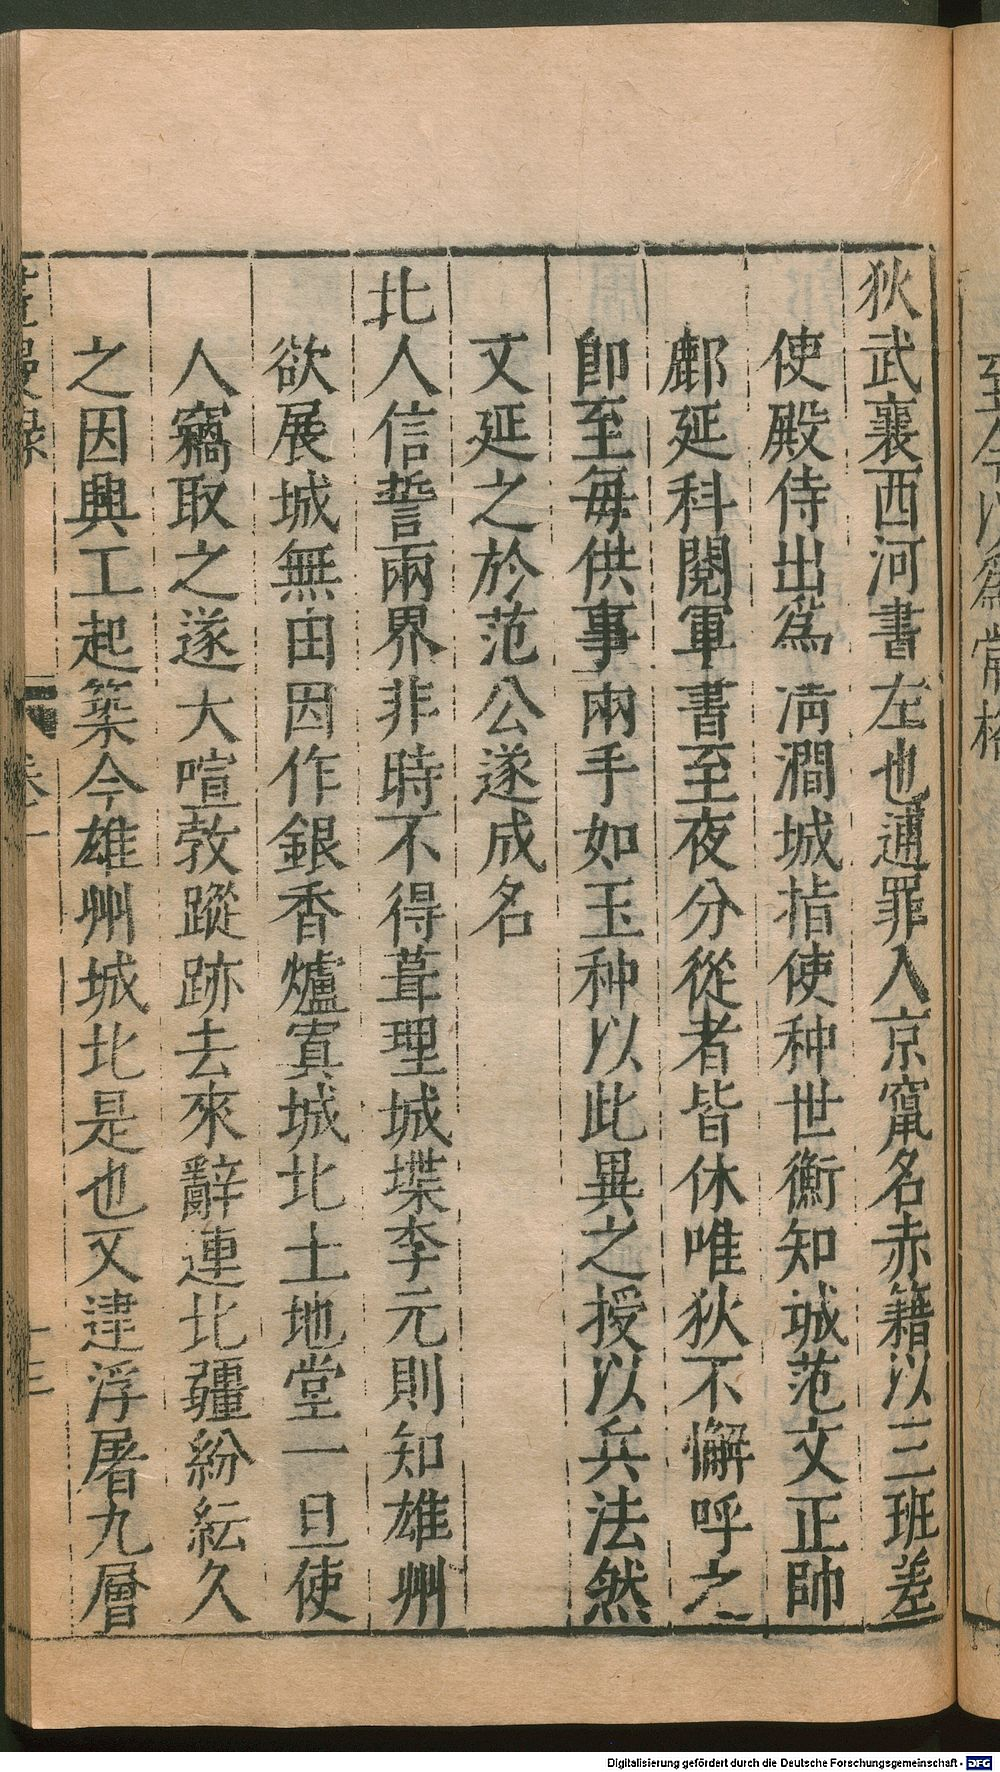 至今以為常格
狄武襄西河書左也逋罪入京竄名赤籍以三班差
使殿侍出為清澗城指使种世衡知城范文正帥
鄜延科閱軍書至夜分從者皆休唯狄不懈呼之
即至每供事兩手如玉种以此異之授以兵法然
又延之於范公遂成名
北人信誓兩界非時不得葺理城堞李元則知雄州
欲展城無由因作銀香爐寘城北土地堂一旦使
人竊取之遂大喧教蹤跡去來辭連北疆紛紜久
之因興工起築今雄州城北是也又建浮屠九層
卷一
十三
Digitalisierung gefördert durch die Deutsche Forschungsgemeinschaft - DFG